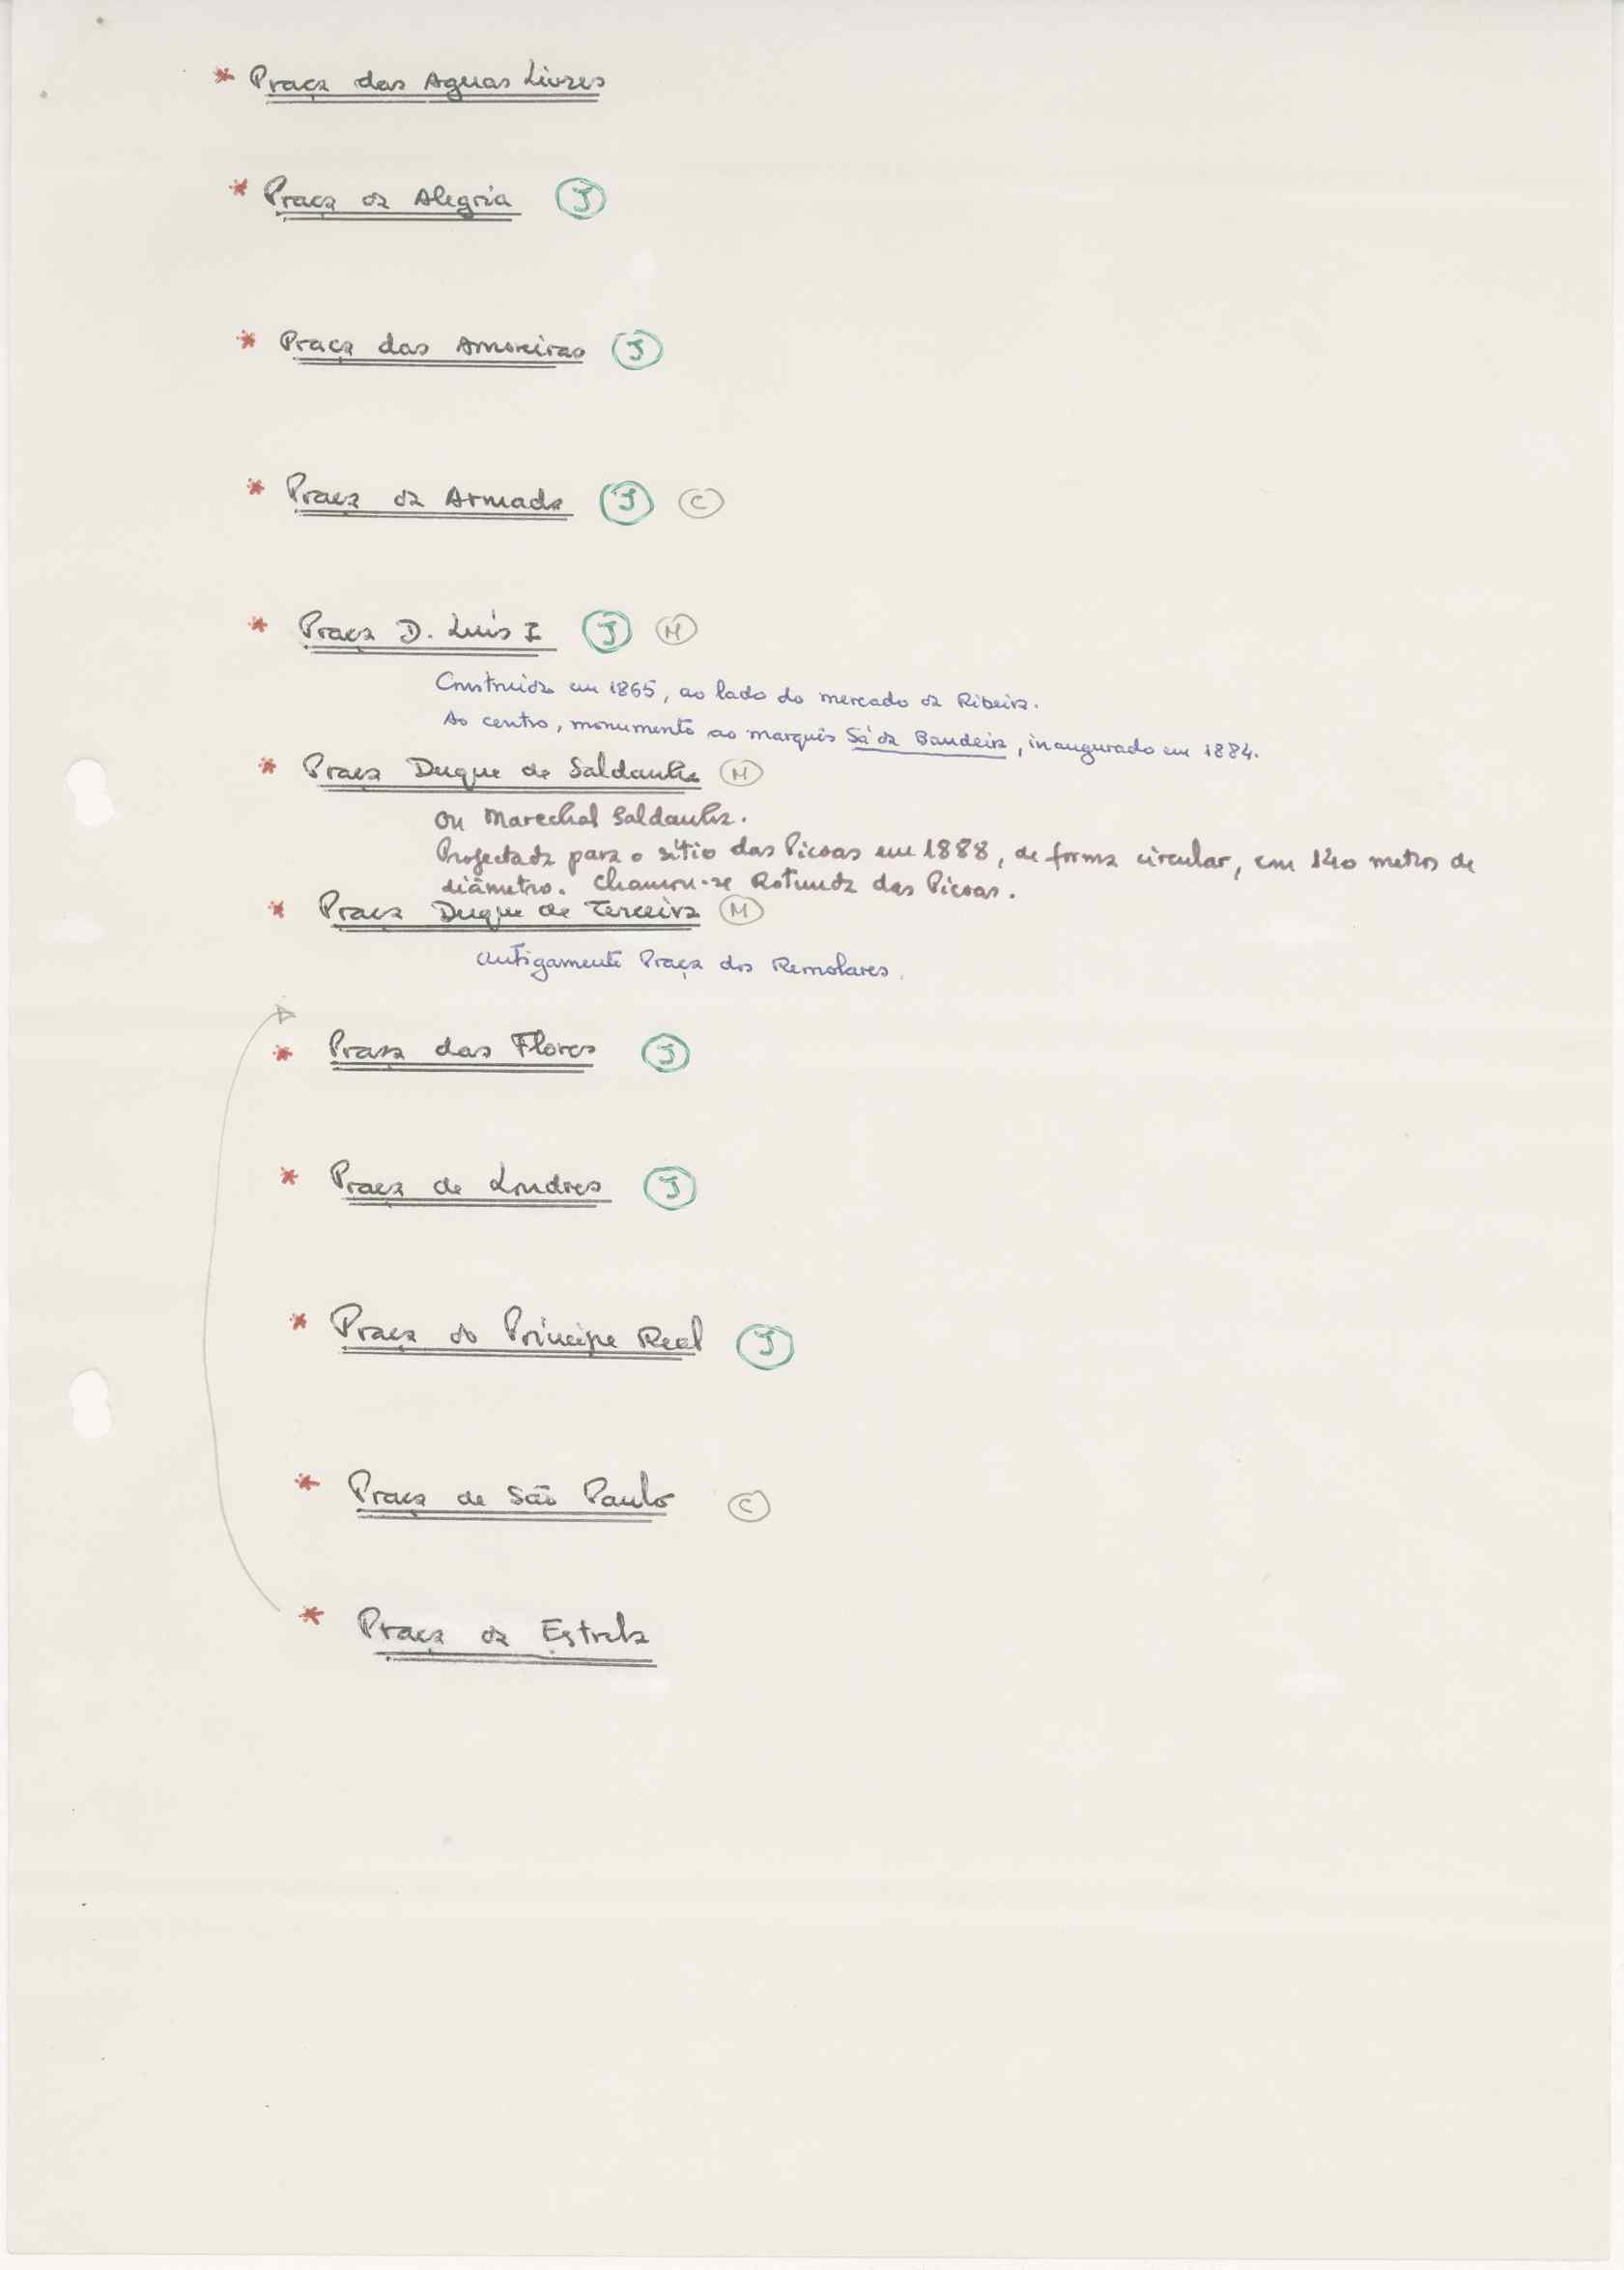 * Praça das Aguas Livres
* Praça da Alegria J
* Praça das Amoreiras J
* Praça da Armada J C
* Praça D. Luís I J M
Construida em 1865, ao lado do mercado da Ribeira.
Ao centro, monumento ao marquês Sá da Bandeira, inaugurado em 1884.
* Praça Duque de Saldanha M
ou Marechal Saldanha.
Projectada para o sítio das Picoas em 1888, de forma circular, em 140 metros de
diâmetro. Chamou-se Rotunda das Picoas.
* Praça Duque de Terceira M
antigamente Praça dos Remolares.
* Praça das Flores J
* Praça de Londres J
* Praça do Príncipe Real J
* Praça de São Paulo C
* Praça da Estrela